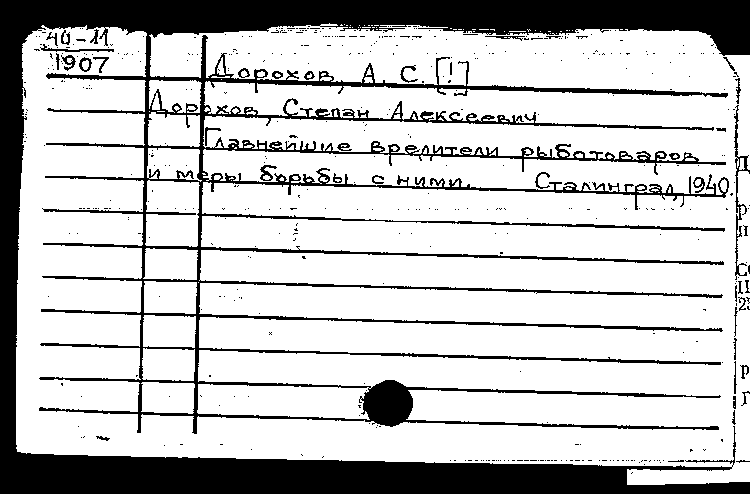 40-11
1907
Дорохов, А. С. [!]
Дорохов, Степан Алексеевич
Главнейшие вредители рыботоваров
и меры борьбы с ними. Сталинград, 1940.